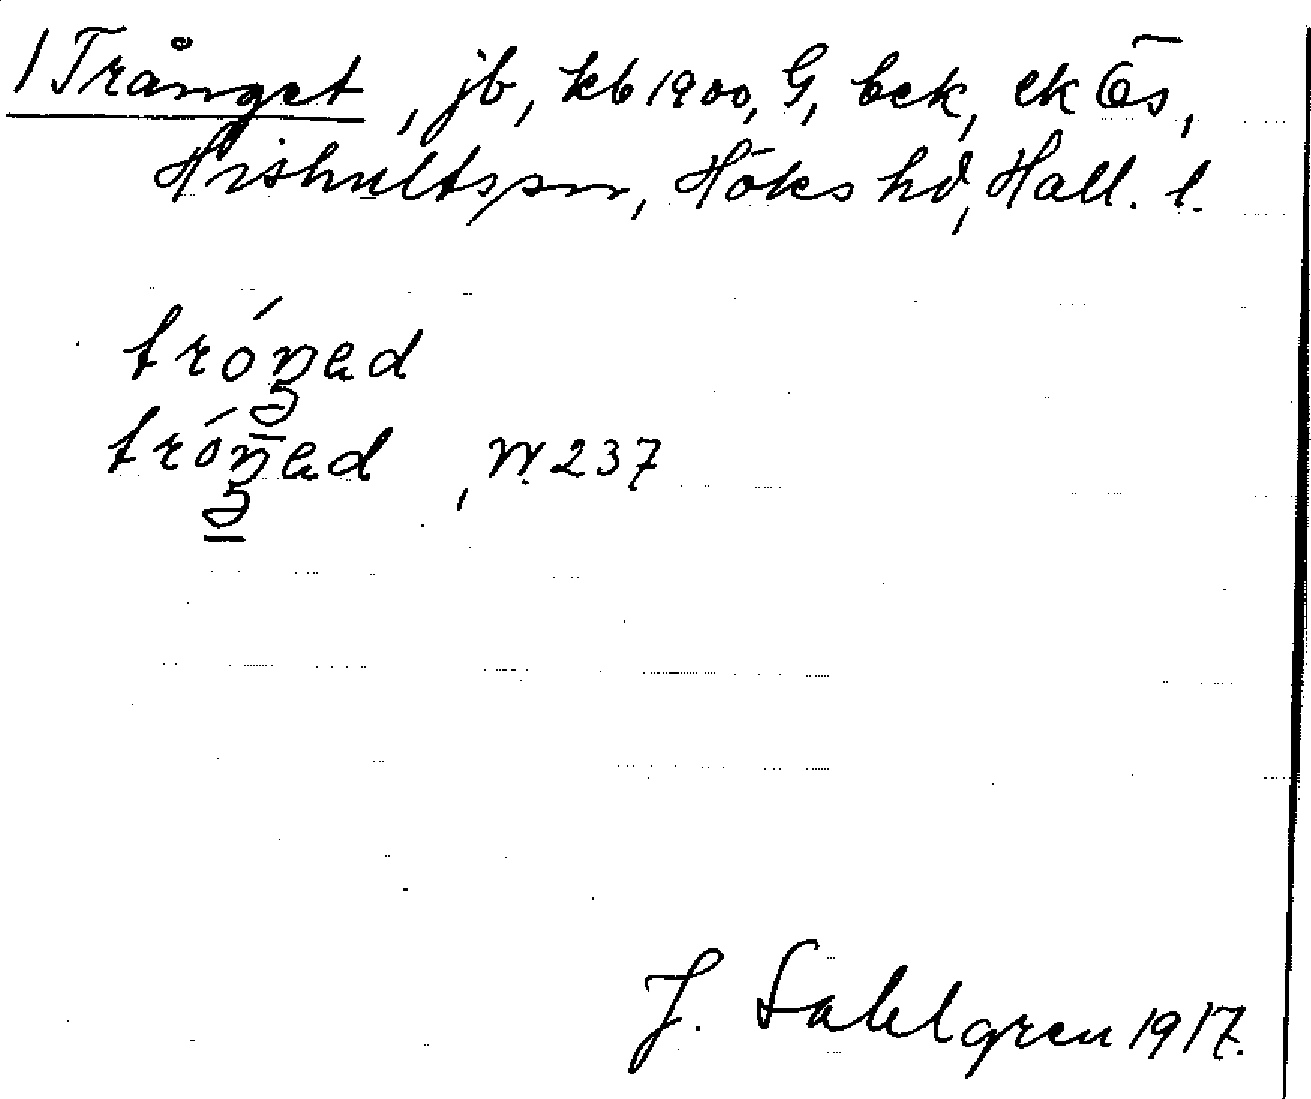 / Trånget, jb, kb 1900, G, bek, ek Ös,
Hishultssn, Höks hd, Hall. l.
tróŋad
tróŋad, N. 237
J. Sahlgren 1917.